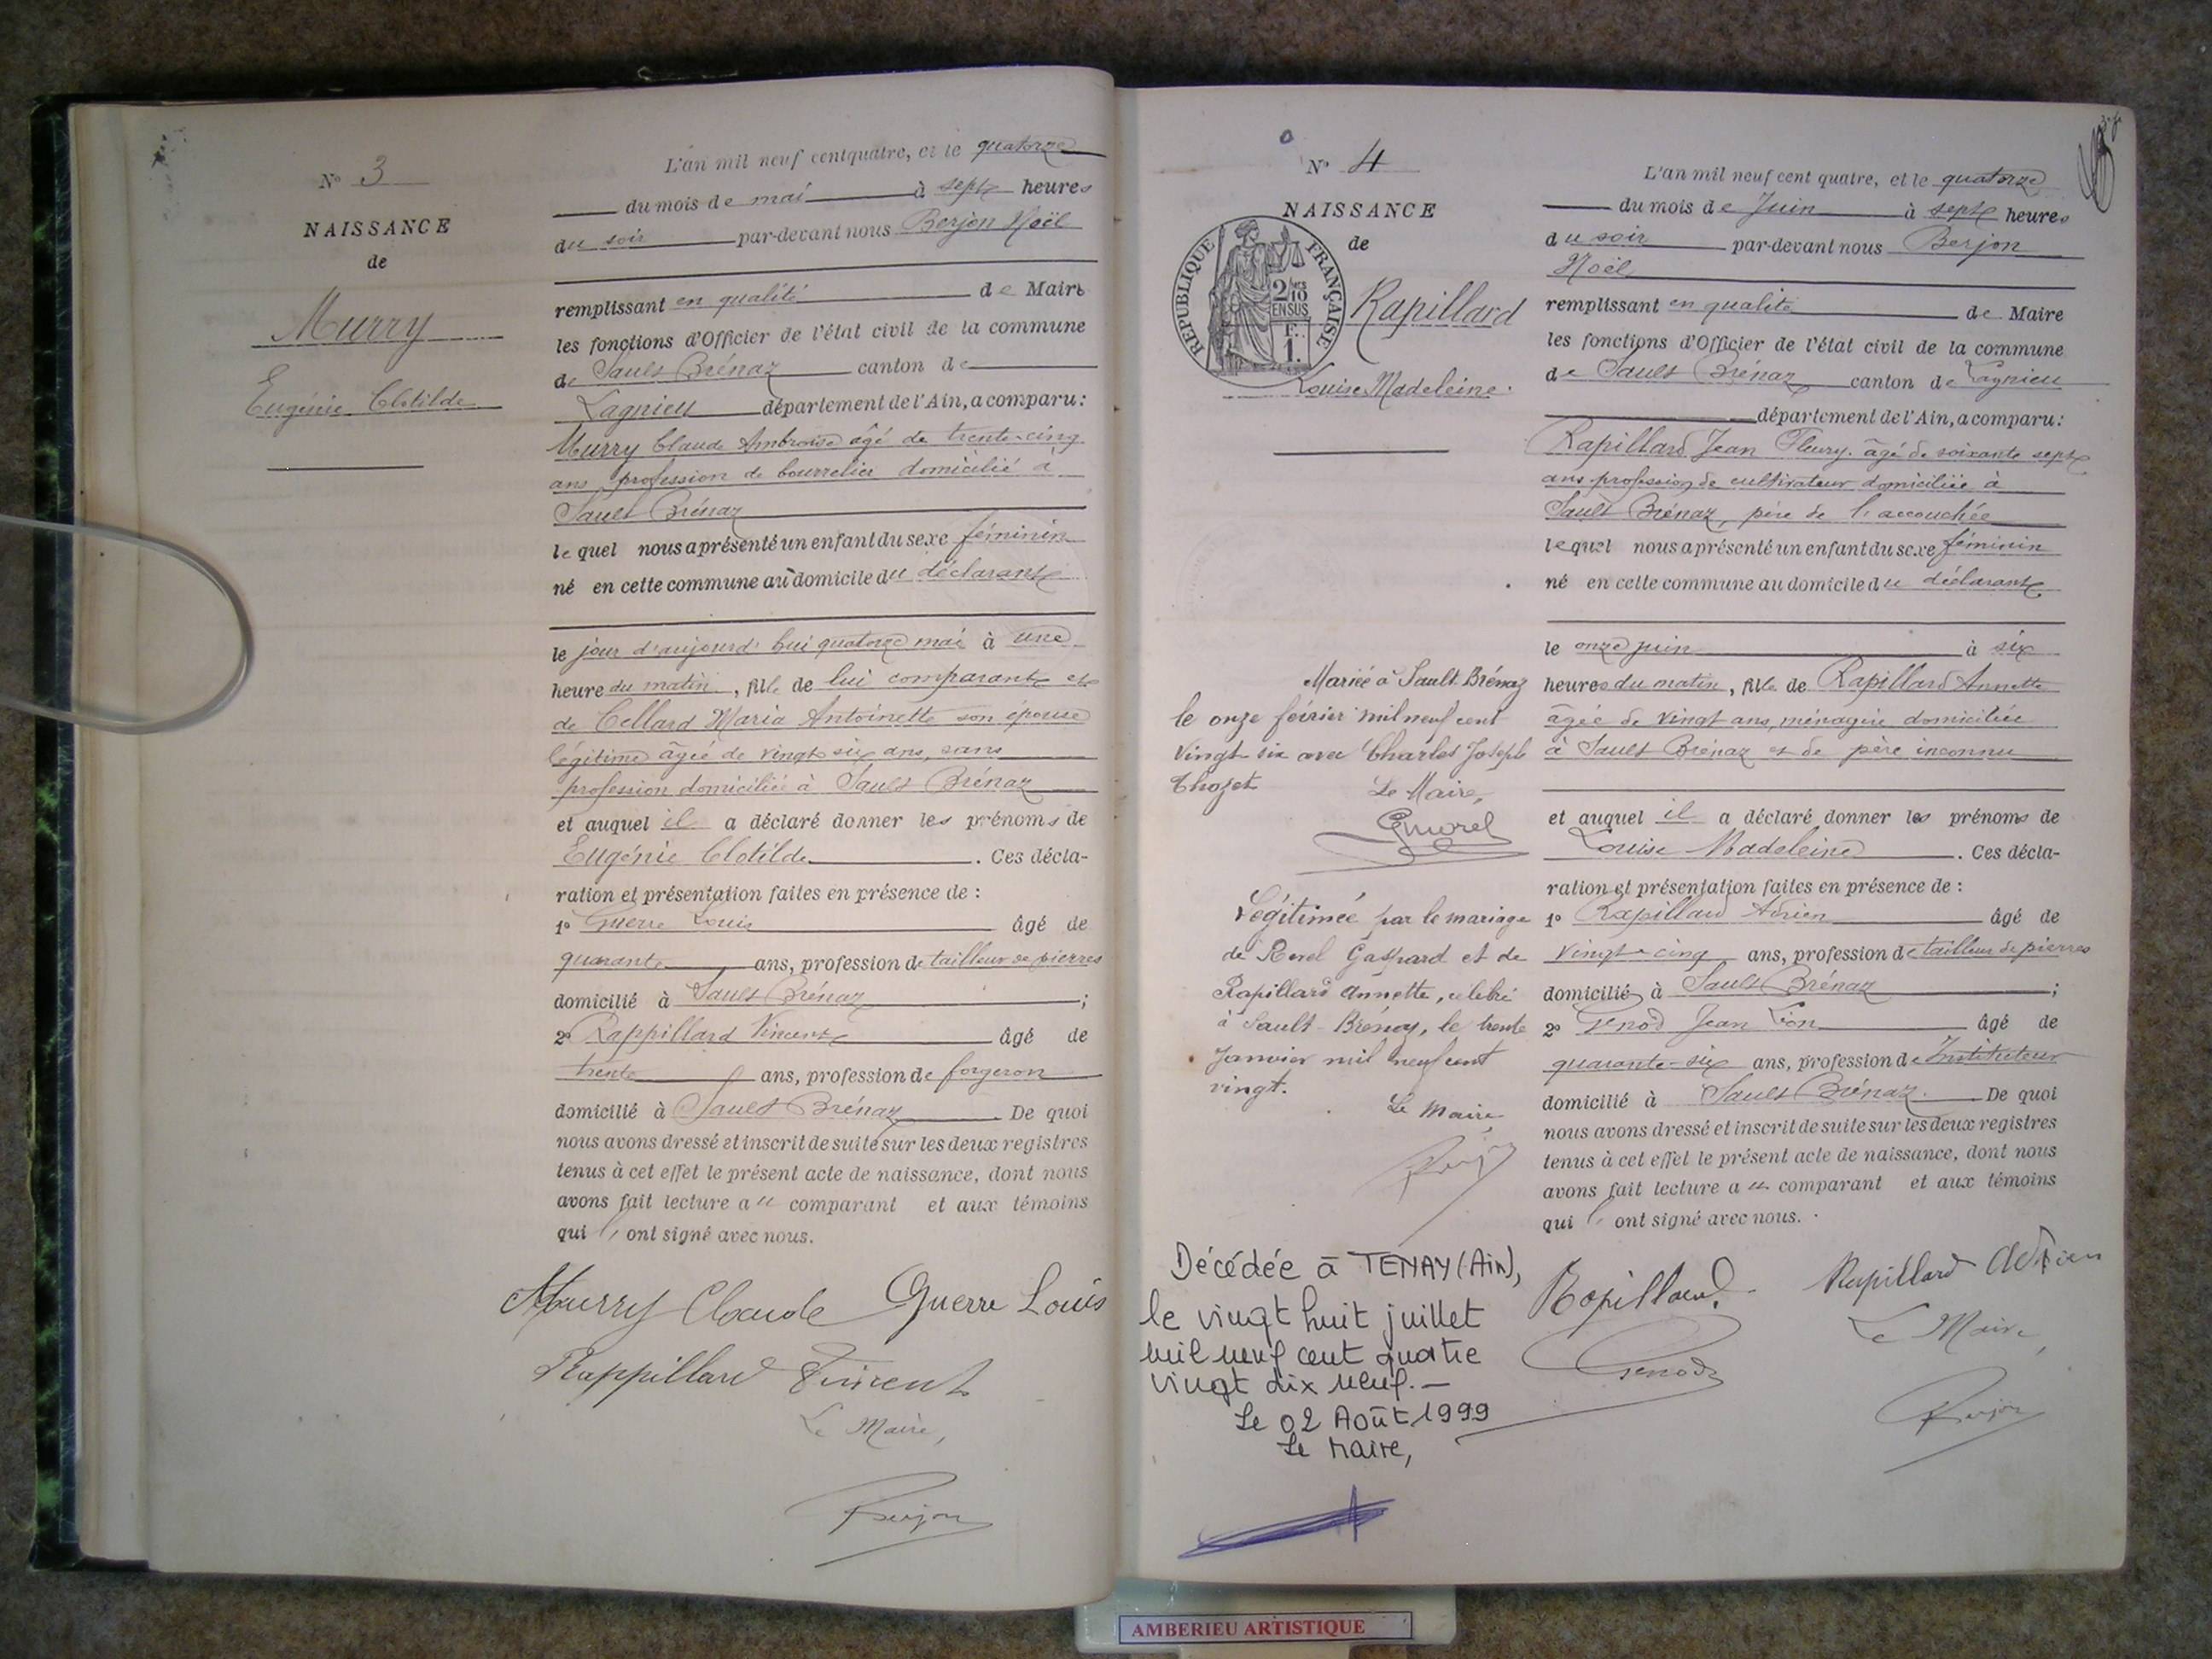 N° 3
NAISSANCE
de
Murry
Eugénie Clotilde
L'an mil neuf cent quatre, et le quatorze
du mois de mai à sept heures
du soir par-devant nous Berjon Noël
remplissant en qualité de Maire
les fonctions d'Officier de l'état civil de la commune
de Sault Brénaz canton de
Lagnieu département de l'Ain, a comparu :
Murry Claude Ambroise âgé de trente-cinq
ans profession de bourrelier domicilié à
Sault Brénaz
lequel nous a présenté un enfant du sexe féminin
né en cette commune au domicile du déclarant
le jour d'aujourd'hui quatorze mai à une
heure du matin, fille de lui comparant et
de Cellard Maria Antoinette son épouse
légitime âgée de vingt six ans, sans
profession domiciliée à Sault Brénaz
et auquel il a déclaré donner les prénoms de
Eugénie Clotilde. Ces décla-
ration et présentation faites en présence de :
1° Guerre Louis âgé de
quarante ans, profession de tailleur de pierres
domicilié à Sault Brénaz ;
2° Rappillard Vincent âgé de
trente ans, profession de forgeron
domicilié à Sault Brénaz. De quoi
nous avons dressé et inscrit de suite sur les deux registres
tenus à cet effet le présent acte de naissance, dont nous
avons fait lecture au comparant et aux témoins
qui l'ont signé avec nous.
Murry Claude Guerre Louis
Rappillard Vincent
Le Maire,
Berjon
N° 4
NAISSANCE
de
REPUBLIQUE FRANÇAISE
2/10 EN SUS
F. 1.
Rapillard
Louise Madeleine.
Mariée à Sault-Brénaz
le onze février mil neuf cent
vingt six avec Charles Joseph
Thozet Le Maire,
Légitimée par le mariage
de Revel Gaspard et de
Rapillard Annette, célébré
à Sault-Brénaz, le trente
Janvier mil neuf cent
vingt.
Le Maire
Décédée à TENAY (Ain),
le vingt huit juillet
mil neuf cent quatre
vingt dix neuf.—
Le 02 Août 1999
Le Maire,
L'an mil neuf cent quatre, et le quatorze
du mois de Juin à sept heures
du soir par-devant nous Berjon
Noël
remplissant en qualité de Maire
les fonctions d'Officier de l'état civil de la commune
de Sault Brénaz canton de Lagnieu
département de l'Ain, a comparu :
Rapillard Jean Fleury. âgé de soixante sept
ans profession de cultivateur domicilié à
Sault Brénaz, père de l'accouchée
lequel nous a présenté un enfant du sexe féminin
né en cette commune au domicile du déclarant
le onze juin à six
heures du matin, fille de Rapillard Annette
âgée de vingt ans, ménagère domiciliée
à Sault Brénaz et de père inconnu
et auquel il a déclaré donner les prénoms de
Louise Madeleine. Ces décla-
ration et présentation faites en présence de :
1° Rapillard Adrien âgé de
vingt-cinq ans, profession de tailleur de pierres
domicilié à Sault Brénaz ;
2° Genod Jean Léon âgé de
quarante-six ans, profession de Instituteur
domicilié à Sault Brénaz. De quoi
nous avons dressé et inscrit de suite sur les deux registres
tenus à cet effet le présent acte de naissance, dont nous
avons fait lecture au comparant et aux témoins
qui l'ont signé avec nous.
Rapillard. Rapillard Adrien
Genod Le Maire,
Berjon
AMBERIEU ARTISTIQUE